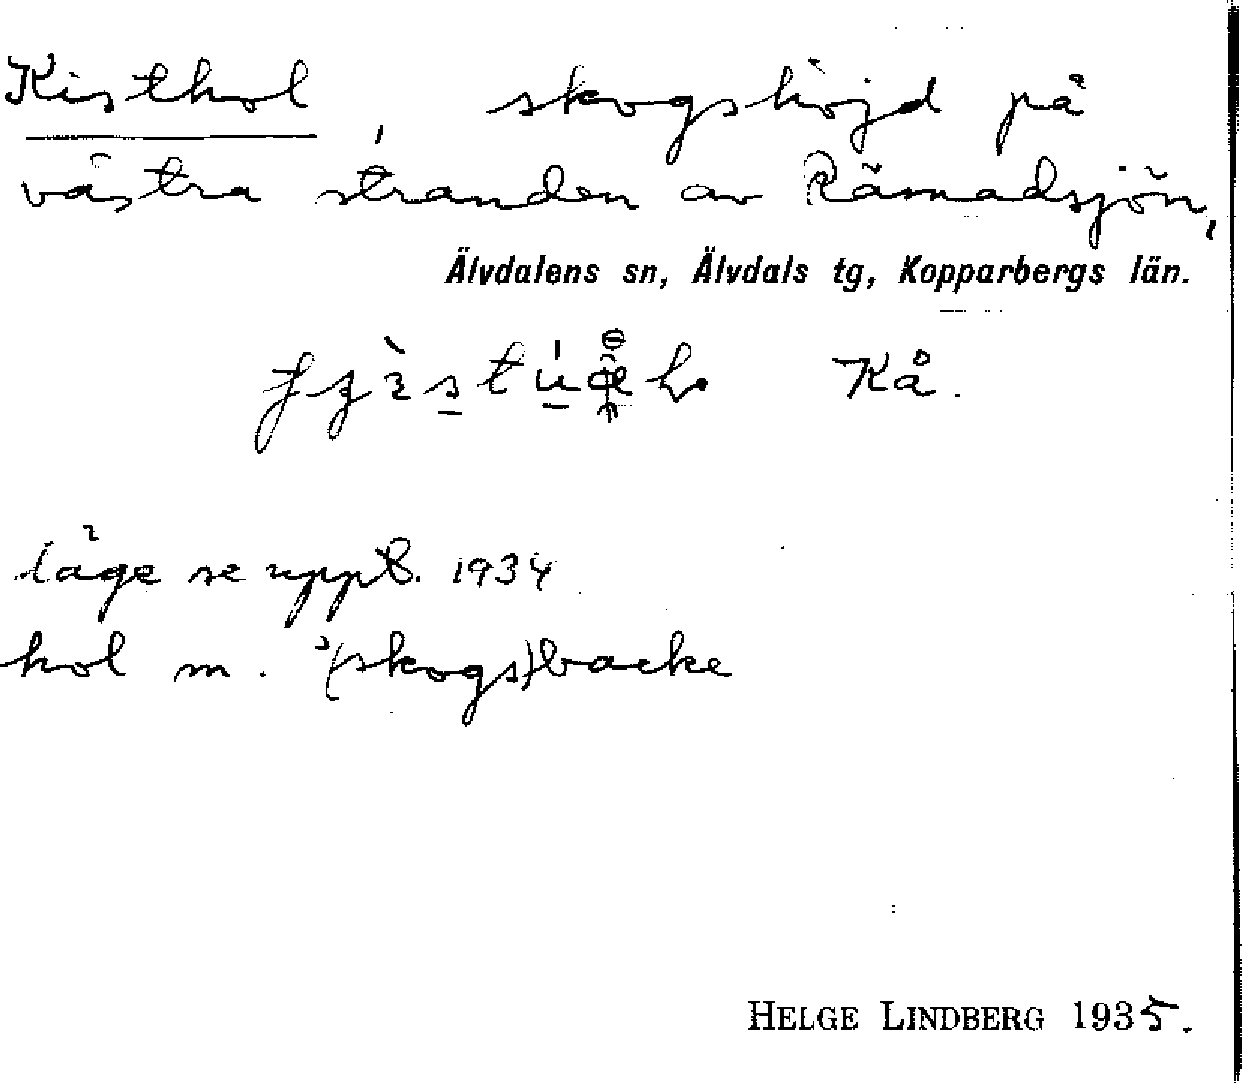 Kisthol, skogshöjd på
västra stranden av Rämadsjön,
Älvdalens sn, Älvdals tg, Kopparbergs län.
Kå.
läge se uppt. 1934
hol m. (skogs)backe
HELGE LINDBERG 1935.